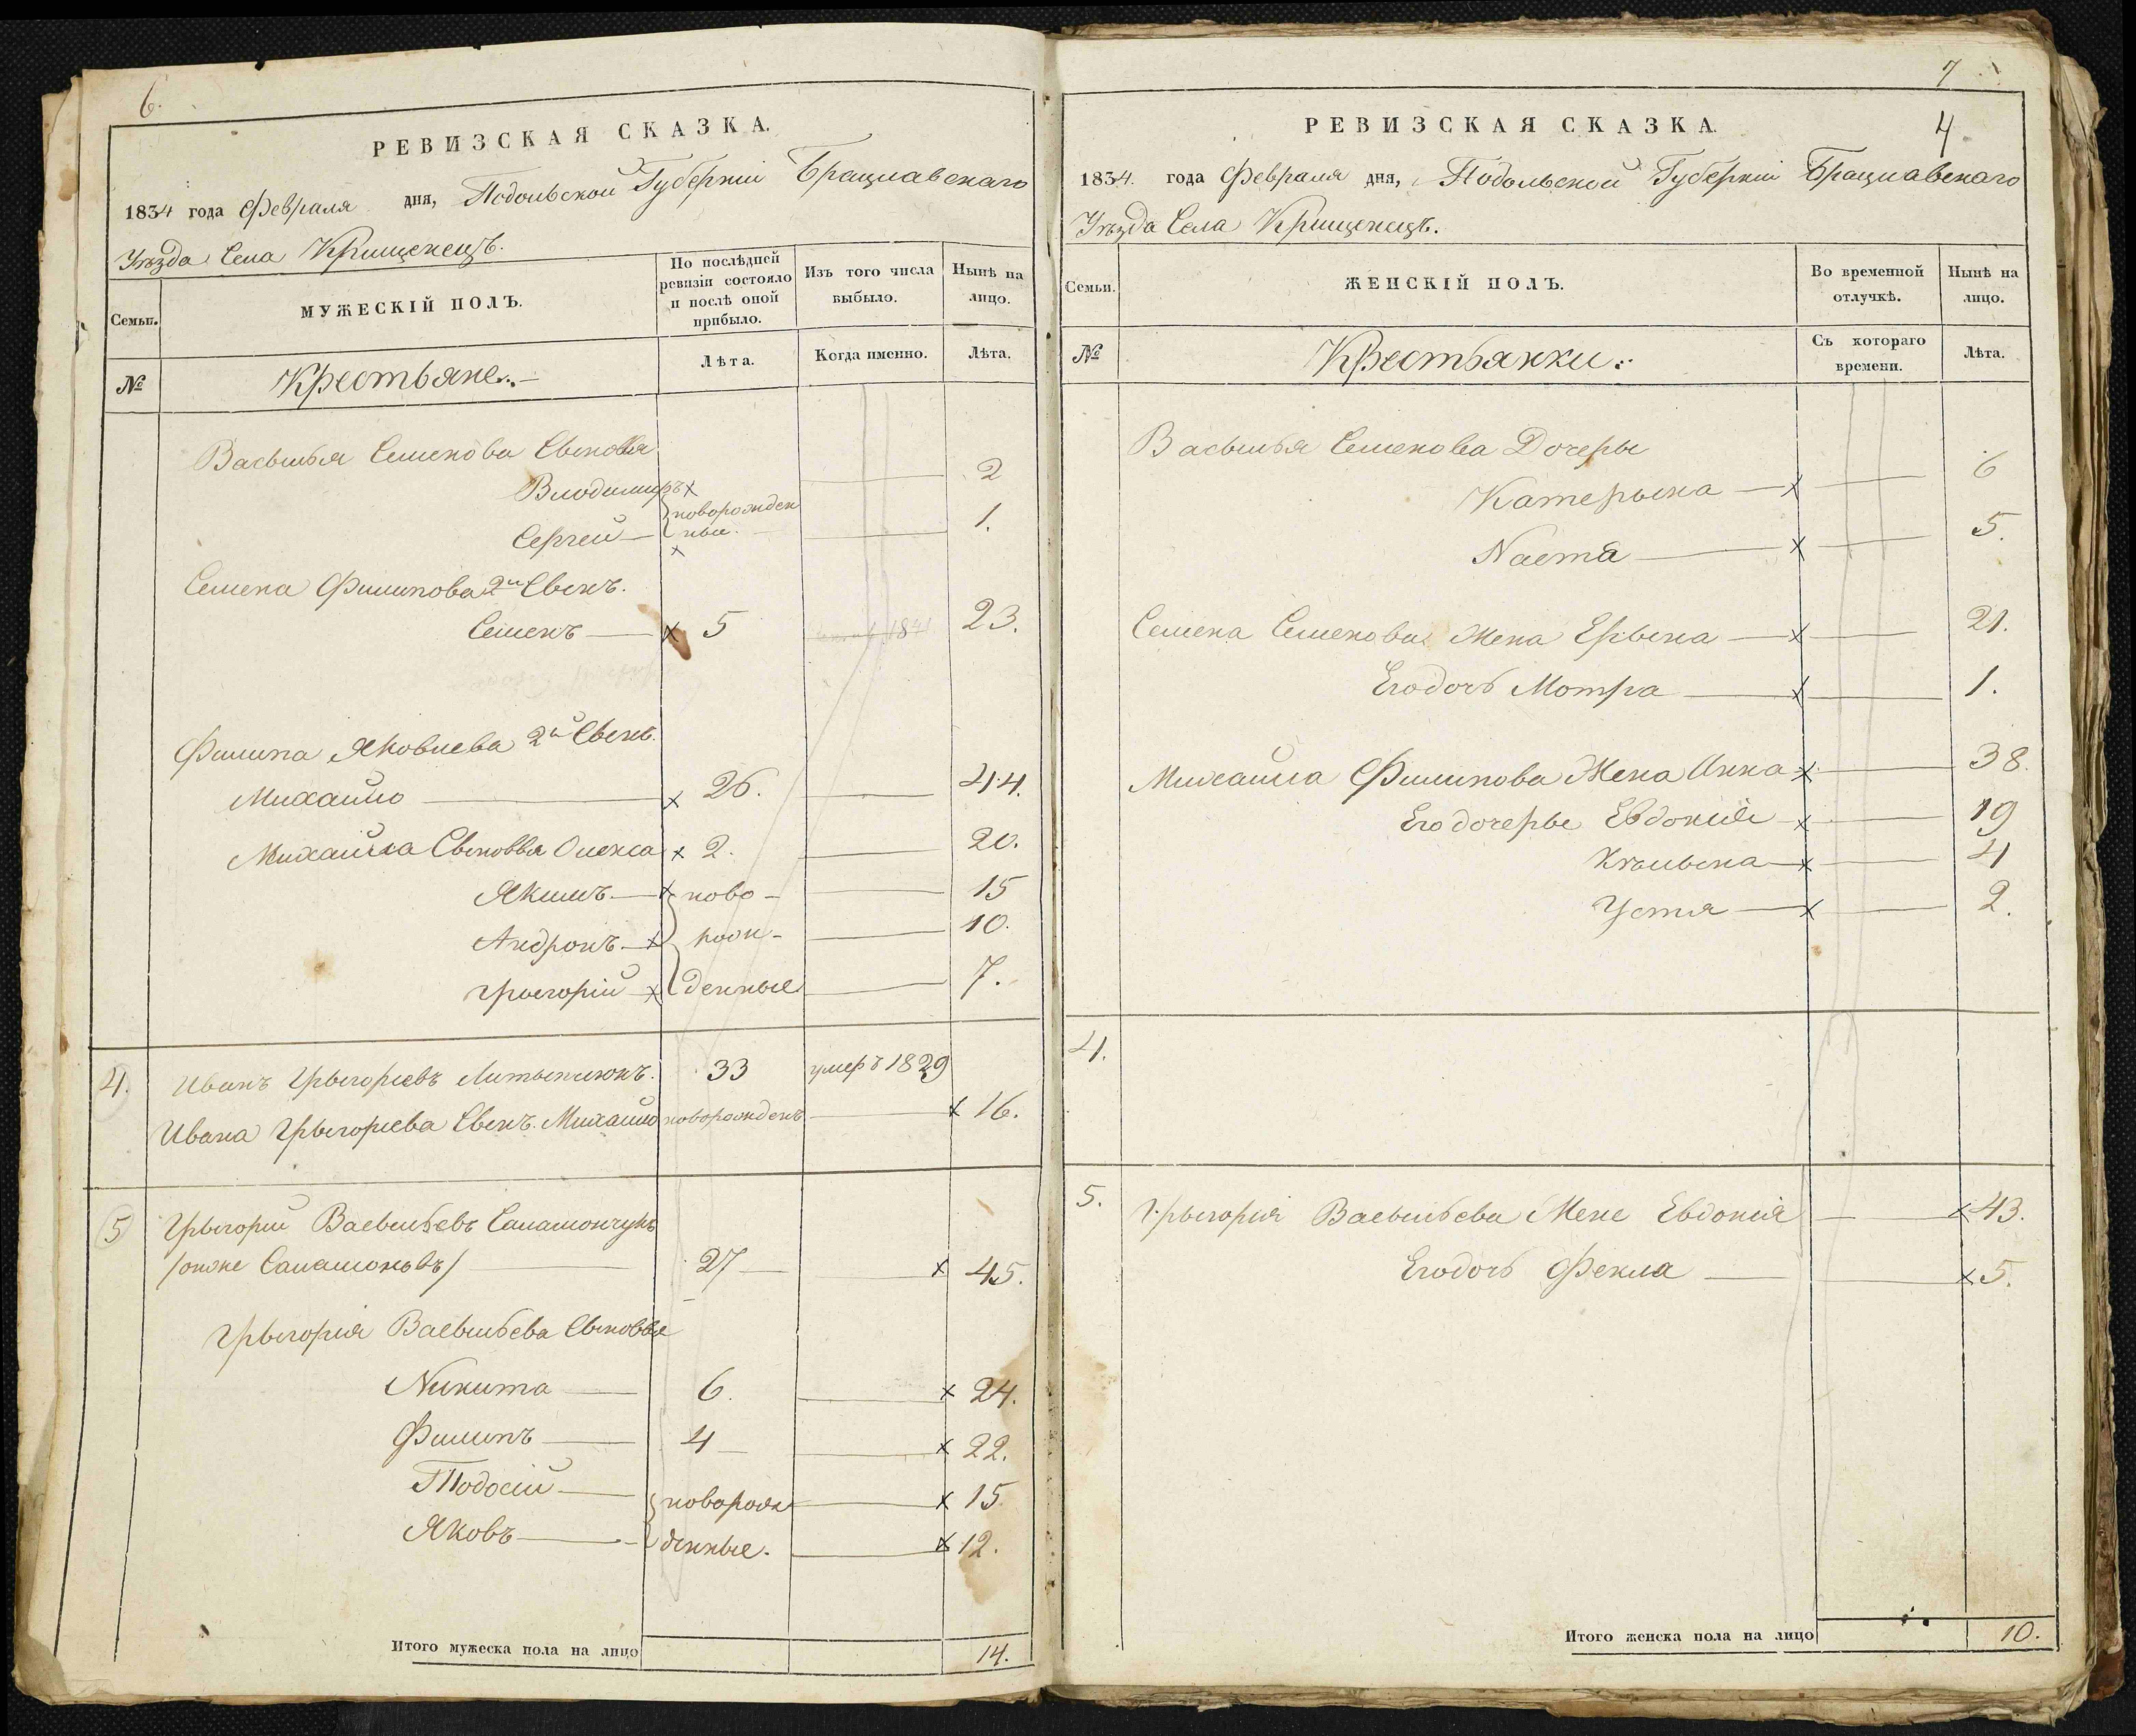 6.
РЕВИЗСКАЯ СКАЗКА.
1834 года Февраля дня, Подольской Губерніи Брацлавскаго
Уѣзда Села Крищенецъ.
Семьи.
МУЖЕСКІЙ ПОЛЪ.
По послѣдней ревизіи состояло и послѣ оной прибыло.
Изъ того числа выбыло.
Нынѣ на лицо.
№
Крестьяне.
Лѣта.
Когда именно.
Лѣта.
Васылья Семенова Сыновья
Влодимиръ x новорожден 2
Сергей ныи. x 1.
Семена Филипова 2й Сынъ.
Семенъ x 5 1841 23.
Филипа Яковлева 2й Сынъ.
Михайло x 26. 44.
Михайла Сыновья Олекса x 2. 20.
Якимъ x ново- 15
Андронъ x рож- 10.
Грыгорій x денные 7.
4. Иванъ Грыгоріевъ 33 умеръ 1829
Ивана Грыгоріева Сынъ. Михайло новорожденъ x 16.
5 Грыгорій Васыльевъ Саламончукъ
/онже Саламоновъ/ 27 x 45.
Грыгорія Васыльева Сыновья
Никита 6. x 24.
Филипъ 4 x 22.
Тодосій новорож x 15
Яковъ денные. x 12.
Итого мужеска пола на лицо 14.
7
РЕВИЗСКАЯ СКАЗКА.
4
1834. года Февраля дня, Подольской Губерніи Брацлавскаго
Уѣзда Села Крищенецъ.
Семьи.
ЖЕНСКІЙ ПОЛЪ.
Во временной отлучкѣ.
Нынѣ на лицо.
№
Крестьянки:
Съ котораго времени.
Лѣта.
Васылья Семенова Дочеры
Катерына x 6
Настя x 5.
Семена Семенова Жена Ерына x 21.
Егодочь Мотра x 1.
Михайла Филипова Жена Анна x 38.
Его дочеры Евдокія x 19
x 4
Устя x 2.
4.
5. Грыгорія Васыльева Жена Евдокія x 43.
Егодочь Фекла x 5.
Итого женска пола на лицо 10.